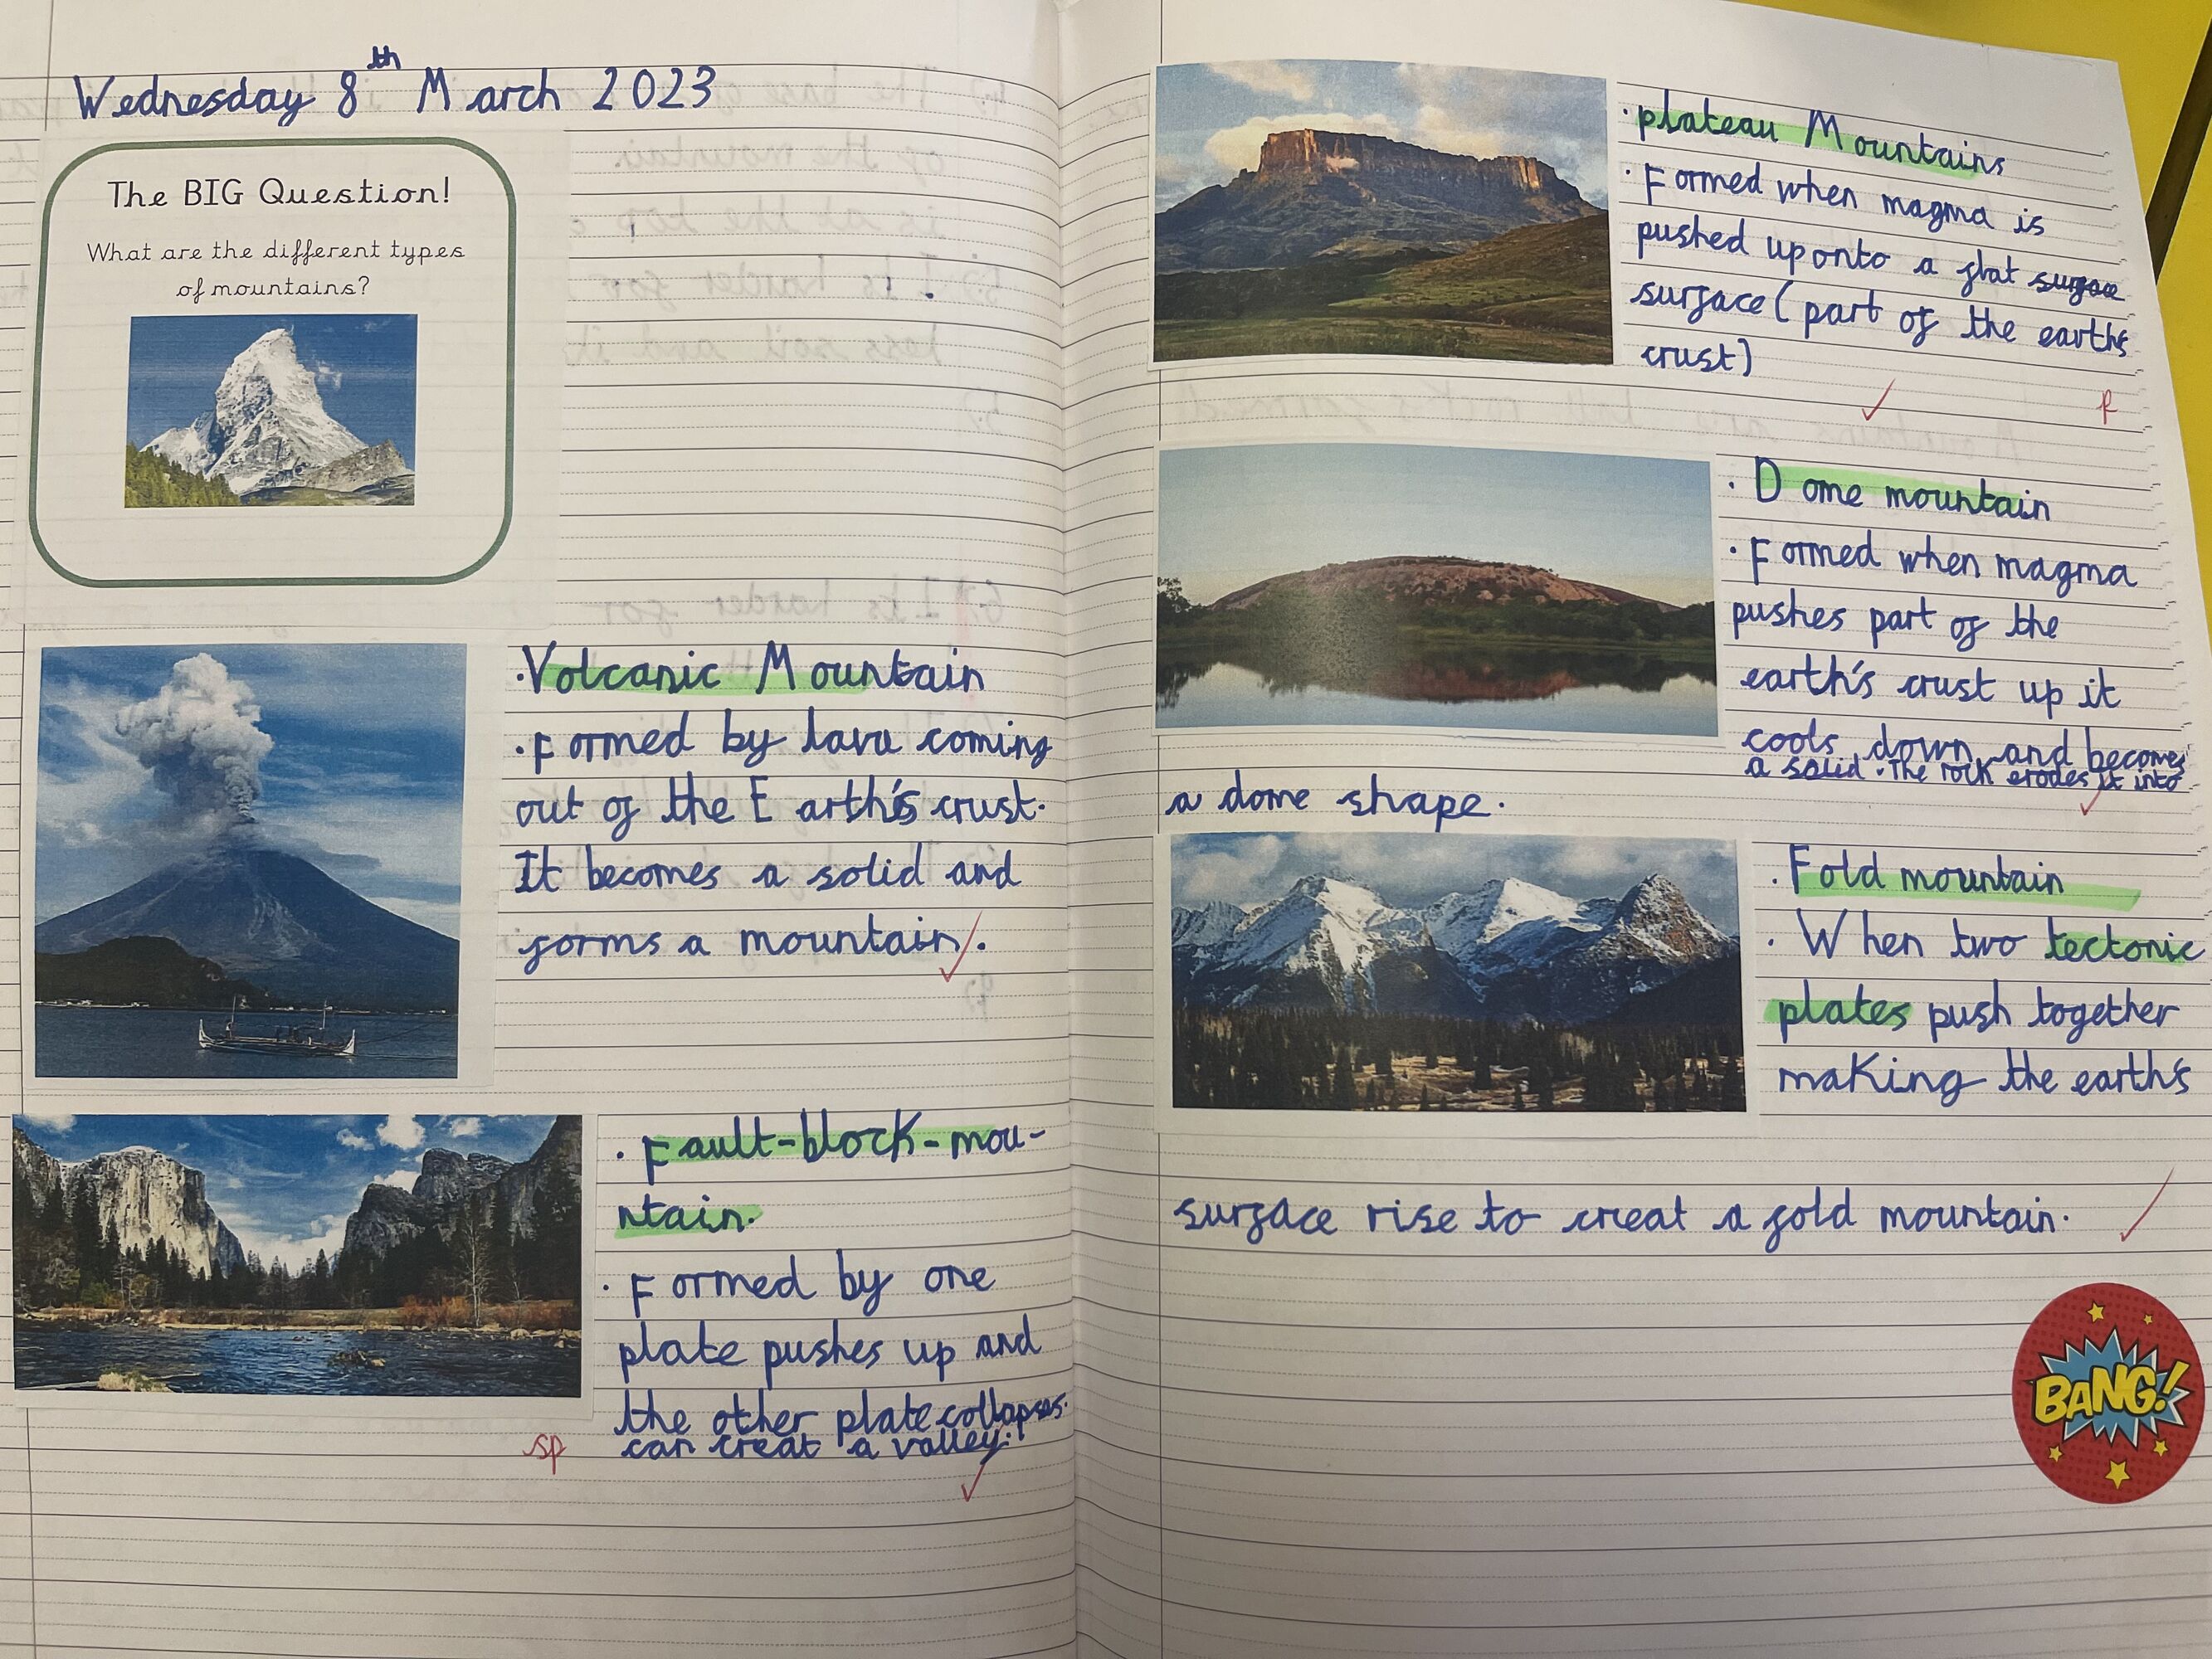 Wednesday 8th March 2023
The BIG Question!
What are the different types
of mountains?
·Volcanic Mountain
·Formed by lava coming
out of the Earth's crust.
It becomes a solid and
forms a mountain.
· Fault-block-mou-
ntain.
· Formed by one
plate pushes up and
the other plate collapses.
sp can creat a valley.
· plateau Mountains
· Formed when magma is
pushed up onto a flat surface
surface (part of the earths
crust)
· Dome mountain
· Formed when magma
pushes part of the
earth's crust up it
cools down and becomes
a solid. The rock erodes it into
a dome shape.
· Fold mountain
· When two tectonic
plates push together
making the earth's
surface rise to creat a fold mountain.
BANG!